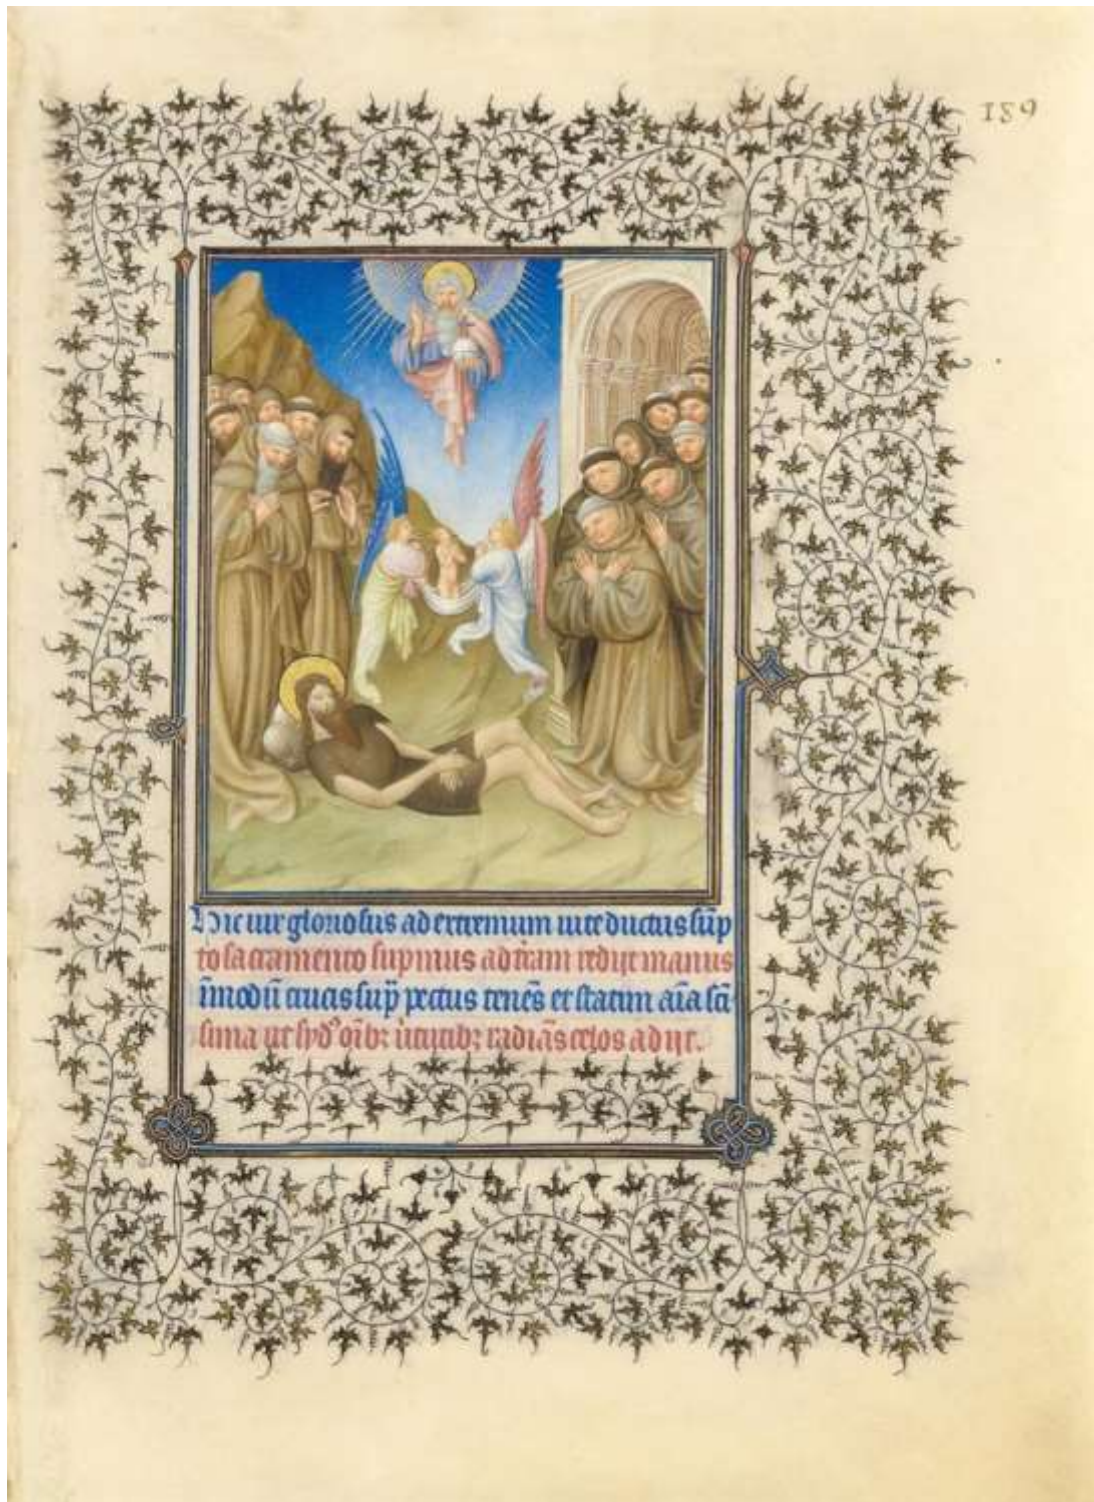 189
Hic vir gloriosus ad extremum vite ductus sūp
to sacramento supinus ad t̄ram redijt manus
ī modū crucis sup̄ pectus tenēs et statim aīa scī
sima ut syd⁹ oībꝫ v̄tutibꝫ radiās celos adijt.